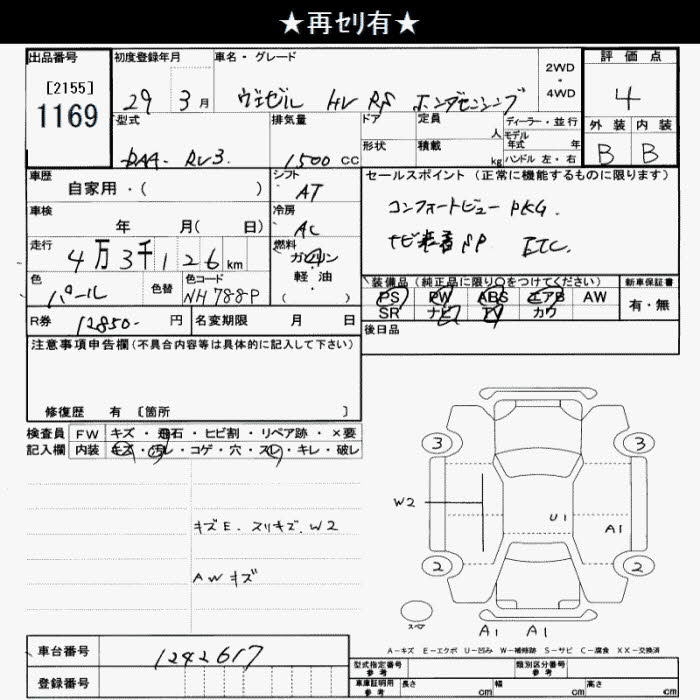 ★再セリ有★
出品番号 初度登録年月 車名・グレード 2WD・4WD 評価点
[2155] 1169 29 3月 ヴェゼル HV RS ホンダセンシング 4
型式 排気量 ドア 定員 人 ディーラー・並行 外装 内装
モデル年式 年
DAA- RU3 1500 CC 形状 積載 kg ハンドル 左・右 B B
車歴 シフト セールスポイント (正常に機能するものに限ります)
自家用・( ) AT コンフォートビュー PKG.
車検 冷房
年 月( 日) AC ナビ装着SP ETC.
走行 燃料
4万3千126km ガソリン・軽油
色 色替 色コード ( ) 装備品 (純正品に限り○をつけてください) 新車保証書
パール NH788-P PS PW ABS エアB AW 有・無
SR ナビ TV カワ
R券 12850- 円 名変期限 月 日 後日品
注意事項申告欄 (不具合内容等は具体的に記入して下さい)
修復歴 有 [箇所 ]
検査員 FW キズ・飛石・ヒビ割・リペア跡・×要
記入欄 内装 キズ・汚レ・コゲ・穴・スレ・キレ・破レ
3 3
W2
キズE. スリキズ. W2
U1 A1
AWキズ
2 2
スペア
A1 A1
A-キズ E-エクボ U-凹み W-補修跡 S-サビ C-腐食 XX-交換済
車台番号 1242617
型式指定番号 参考 類別区分番号 参考
登録番号 車庫証明用 参考 長さ cm 幅 cm 高さ cm